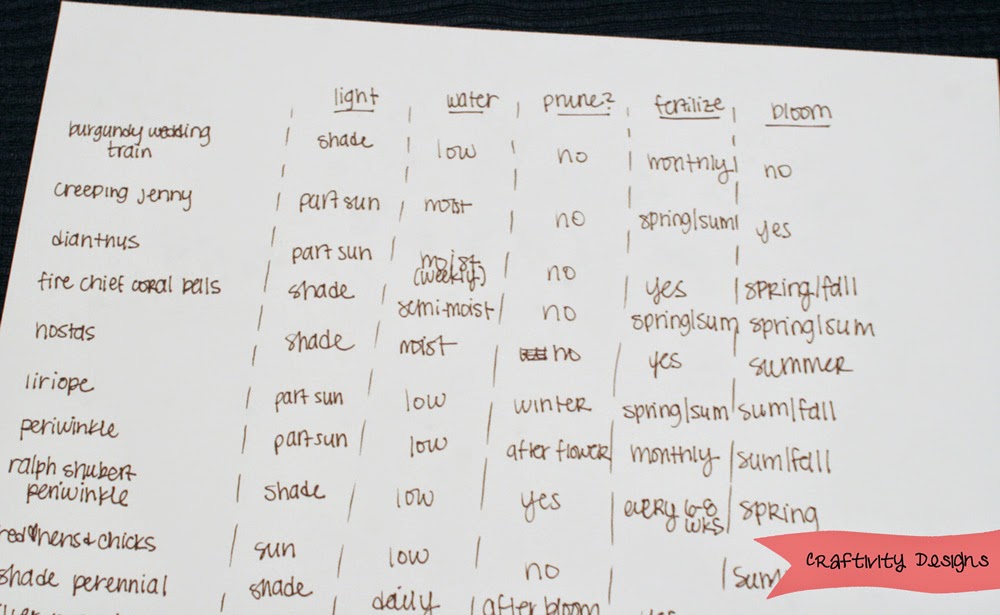 light water prune? fertilize bloom
burgundy wedding
train shade low no monthly no
creeping jenny part sun moist no spring/sum yes
dianthus part sun moist
(weekly) no yes spring/fall
fire chief coral bells shade semi-moist no spring/sum spring/sum
hostas shade moist no yes summer
liriope part sun low winter spring/sum sum/fall
periwinkle part sun low after flower monthly sum/fall
ralph shubert
periwinkle shade low yes every 6-8
wks spring
red hens & chicks sun low no
shade perennial shade daily after bloom yes
Craftivity Designs